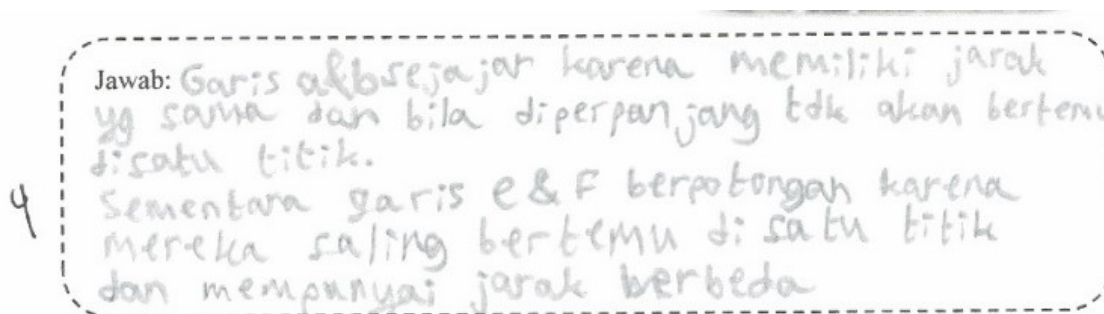 Jawab: Garis a&b sejajar karena memiliki jarak
yg sama dan bila diperpanjang tdk akan bertemu
disatu titik.
4 Sementara garis e & F berpotongan karena
mereka saling bertemu di satu titik
dan mempunyai jarak berbeda